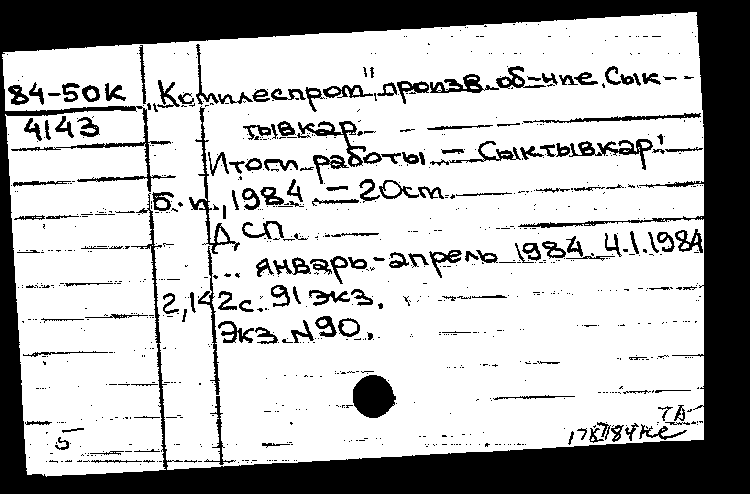 84-50К „Комилеспром", произв. об-ние, Сык-
4143 тывкар.
Итоги работы. – Сыктывкар:
Б. п., 1984. – 20 см.
ДСП.
... январь-апрель 1984. 4.1.1984
2,142 с. 91 экз.
Экз. N 90.
5